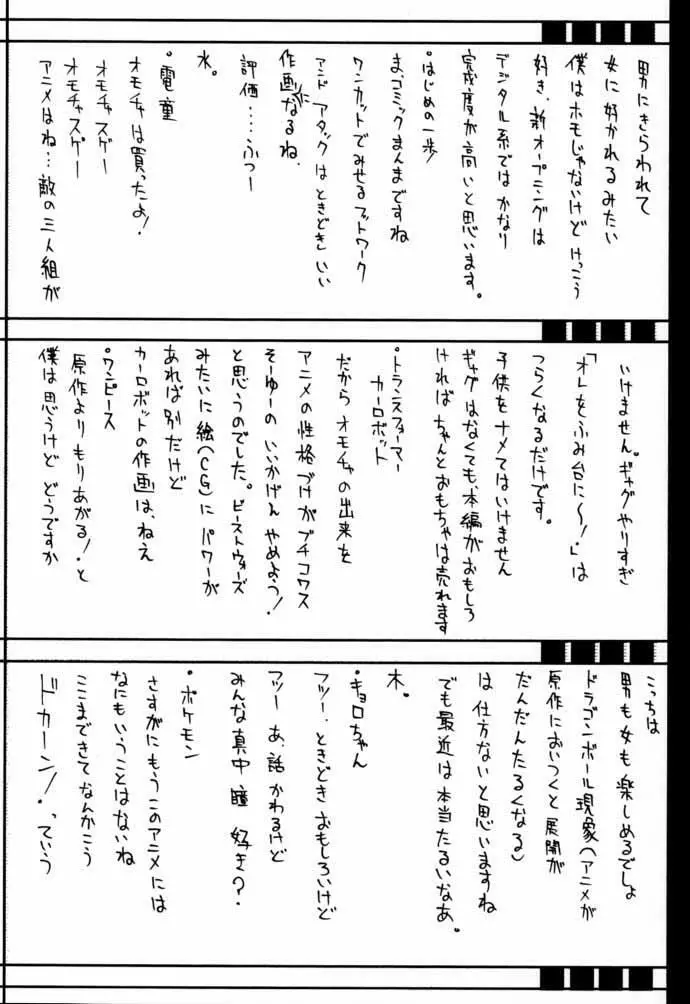 男にきらわれて
女に好かれるみたい
僕はホモじゃないけど けっこう
好き、新オープニングは
デジタル系ではかなり
完成度が高いと思います。
・はじめの一歩
ま、コミックまんまですね
ワンカットでみせるフットワーク
アンド アタックはときどきいい
作画になるね、
評価……ふつー
水。
・電童
オモチャは買ったよ!
オモチャスゲー
オモチャスゲー
アニメはね…敵の三人組が
いけません。ギャグやりすぎ
「オレをふみ台に〜!」は
つらくなるだけです。
子供をナメてはいけません
ギャグはなくても、本編がおもしろ
ければ ちゃんとおもちゃは売れます
・トランスフォーマー
カーロボット
だから オモチャの出来を
アニメの性格づけがブチコワス
そーゆーの いいかげん やめよう!
と思うのでした。ビーストウォーズ
みたいに絵(CG)に パワーが
あれば別だけど
カーロボットの作画は、ねえ
・ワンピース
原作よりもりあがる!と
僕は思うけど どうですか
こっちは
男も女も楽しめるでしょ
ドラゴンボール現象(アニメが
原作においつくと展開が
だんだんたるくなる)
は 仕方ないと思いますね
でも最近は本当たるいなあ。
木。
・キョロちゃん
フツー、ときどき おもしろいけど
フツー あ、話 かわるけど
みんな真中 瞳 好き?
・ポケモン
さすがにもうこのアニメには
なにもいうことはないね
ここまできてなんかこう
ドカーン!っていう